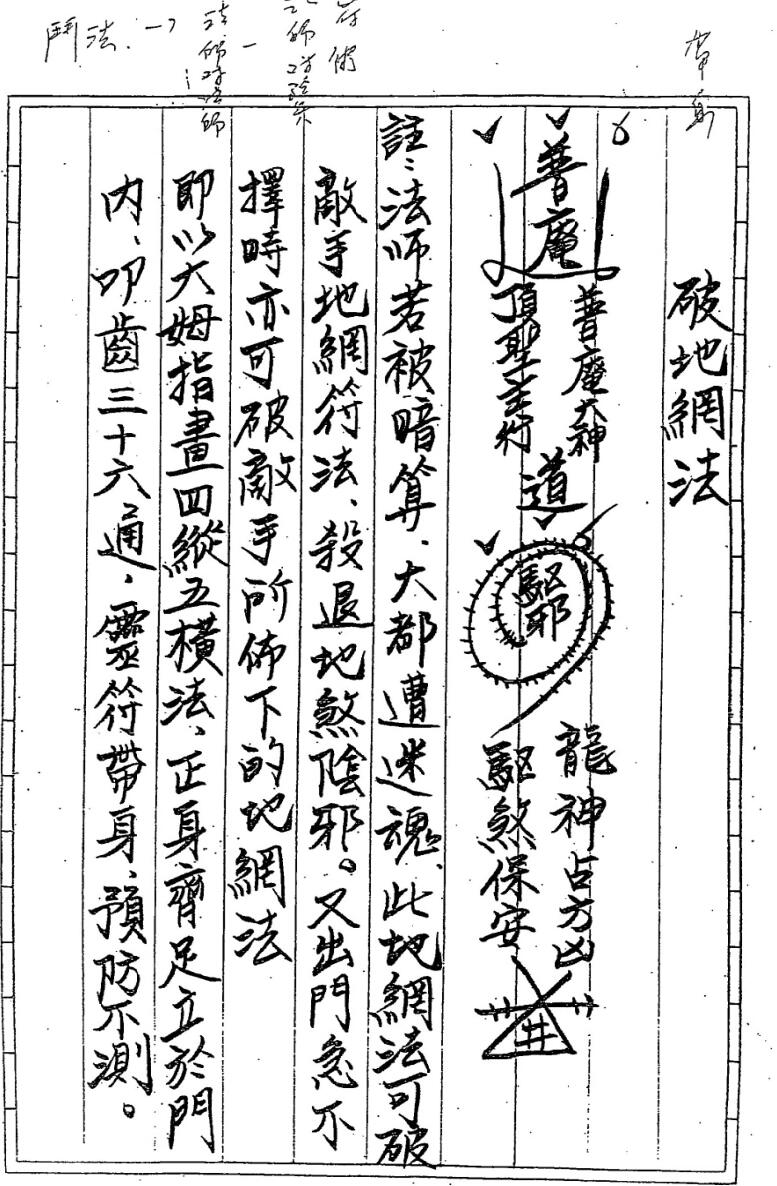 帶身
鬥法
破地網法
普庵
普庵大神
頂聖主行
道
驅邪
龍神占方凶
驅煞保安
井
註:法師若被暗算、大都遭迷魂、此地網法可破
敵手地網符法、殺退地煞陰邪。又出門急不
擇時亦可破敵手所佈下的地網法
即以大姆指畫四縱五橫法、正身齊足立於門
內、叩齒三十六通、靈符帶身、預防不測。